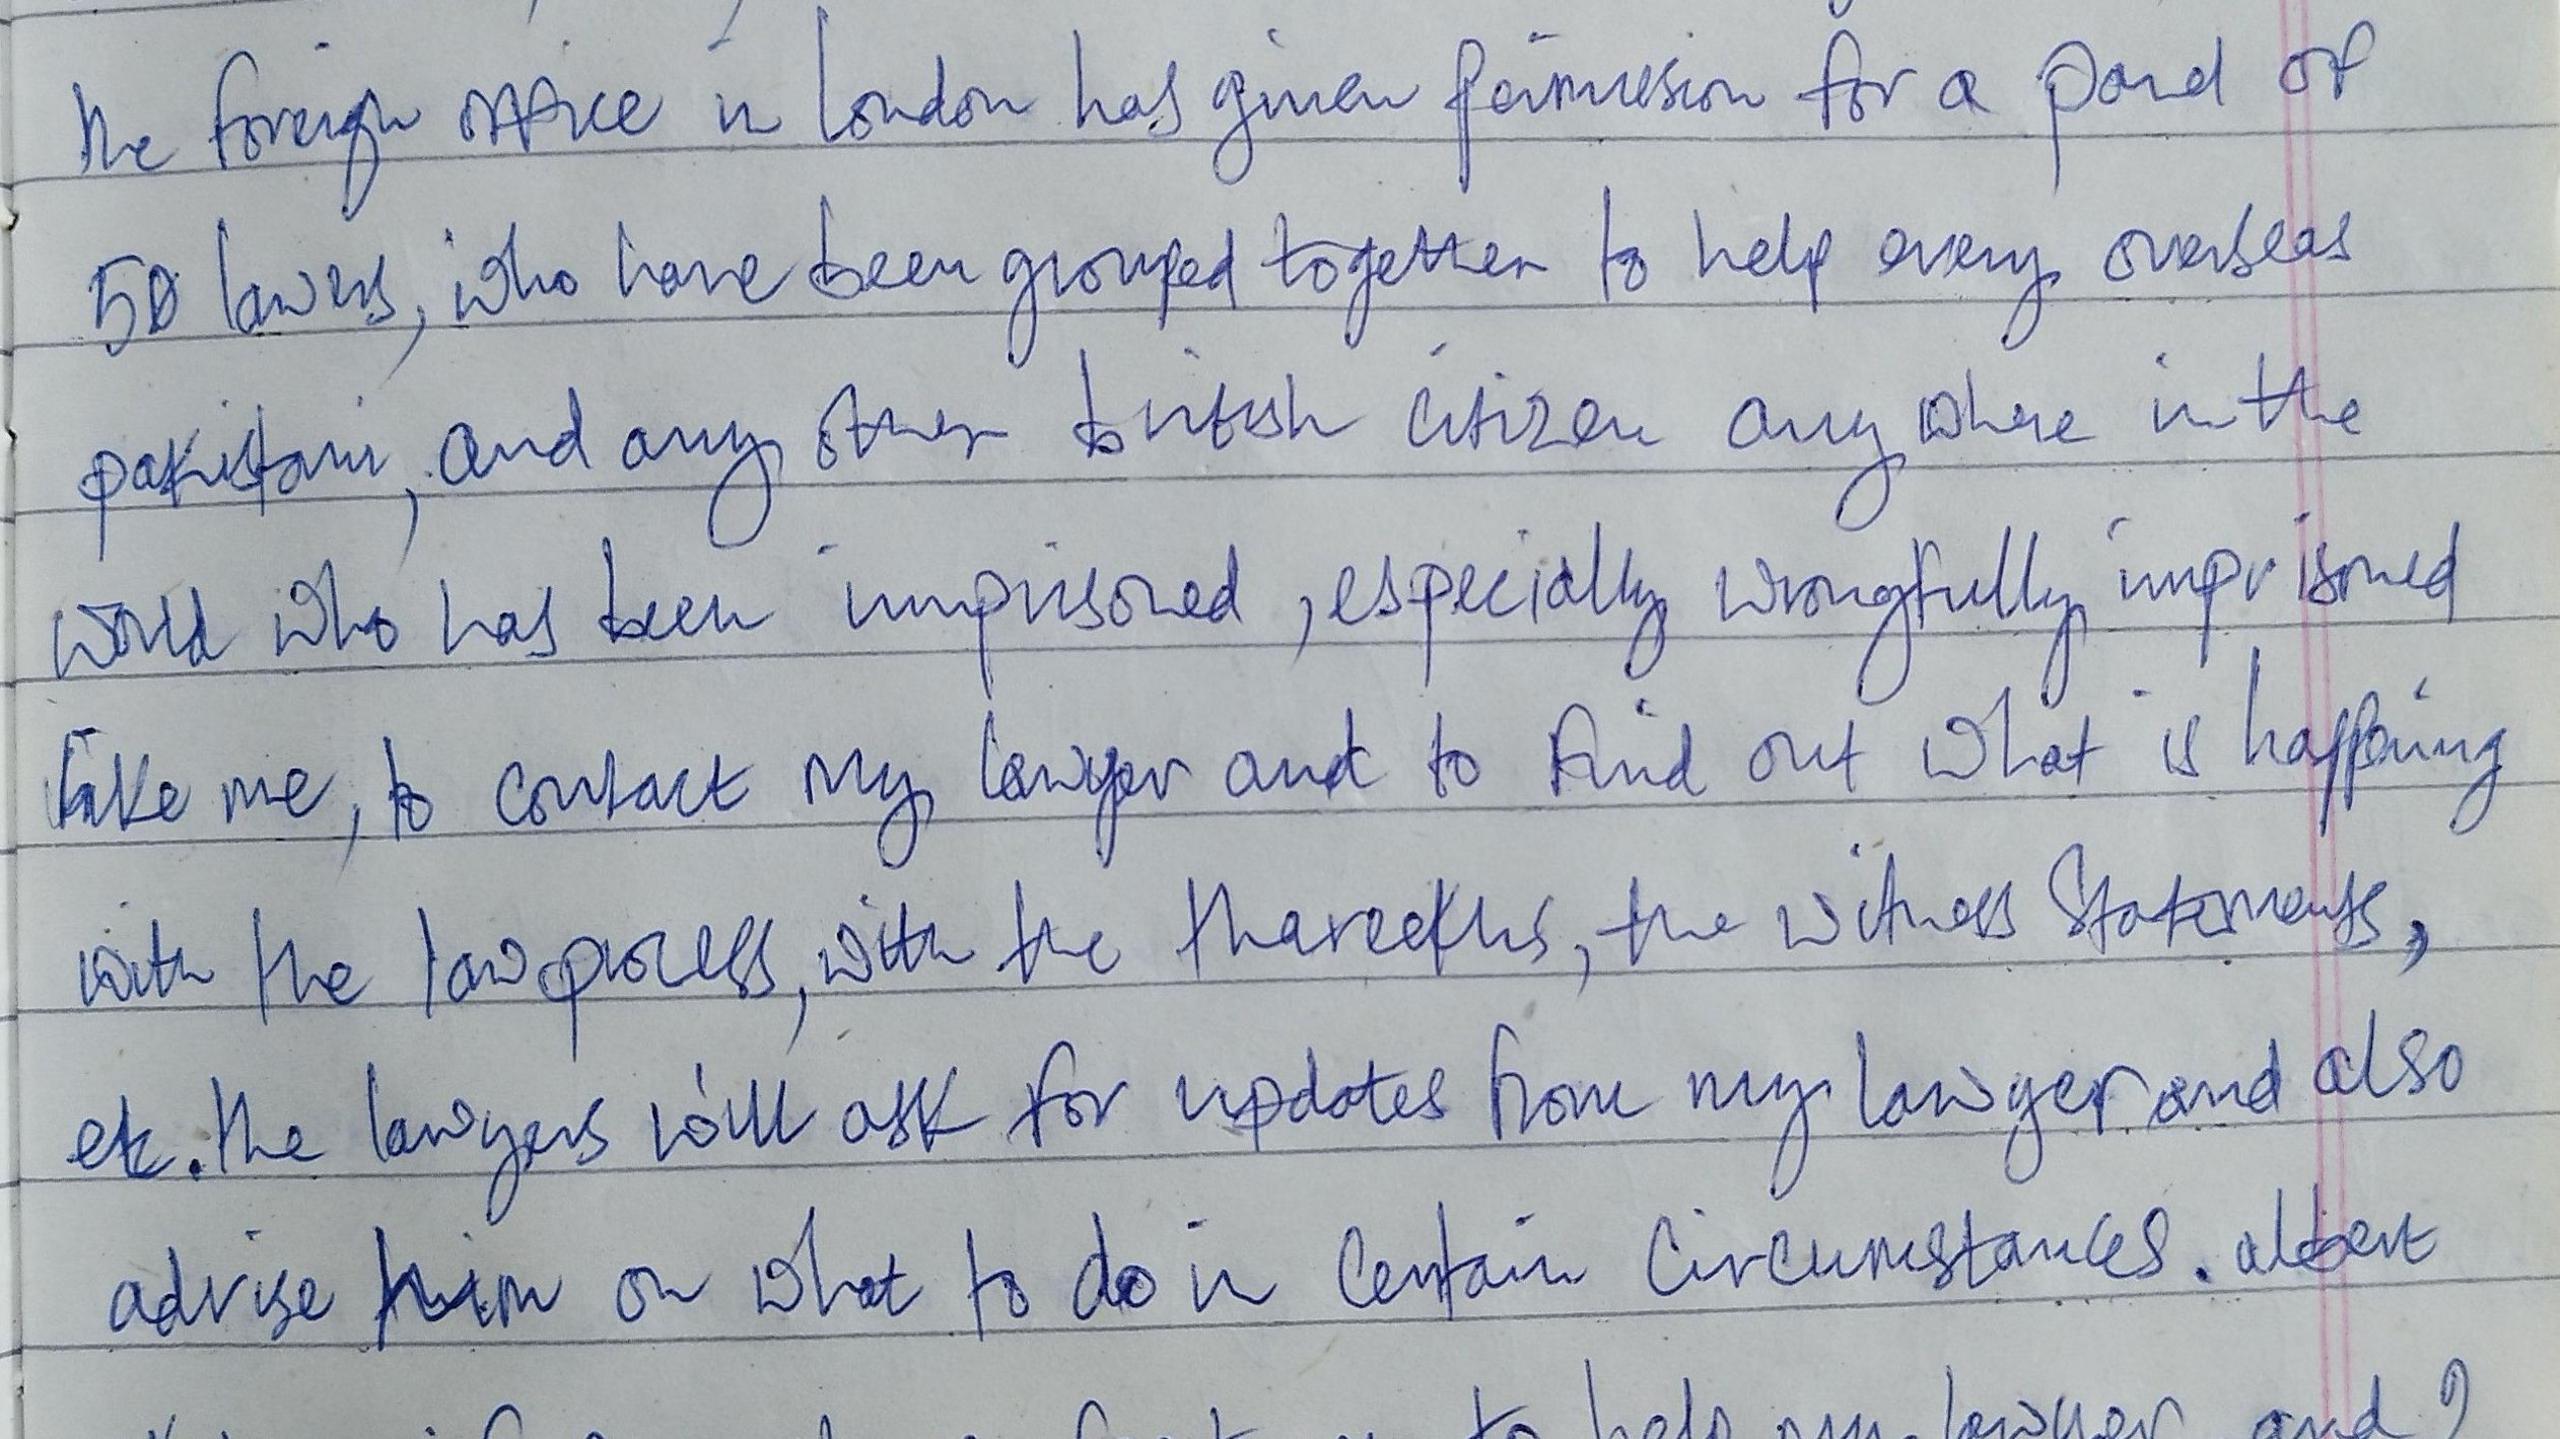 the foreign office in london has given permission for a panel of
50 lawers, who have been grouped together to help every overseas
pakistani, and any other british citizen any where in the
world who has been imprisoned, especially wrongfully imprisoned
like me, to contact my lawyer and to find out what is happening
with the law process, with the thareekhs, the witness statements,
etc. the lawyers will ask for updates from my lawyer and also
advise him on what to do in certain circumstances. albert
to help my lawyer and I